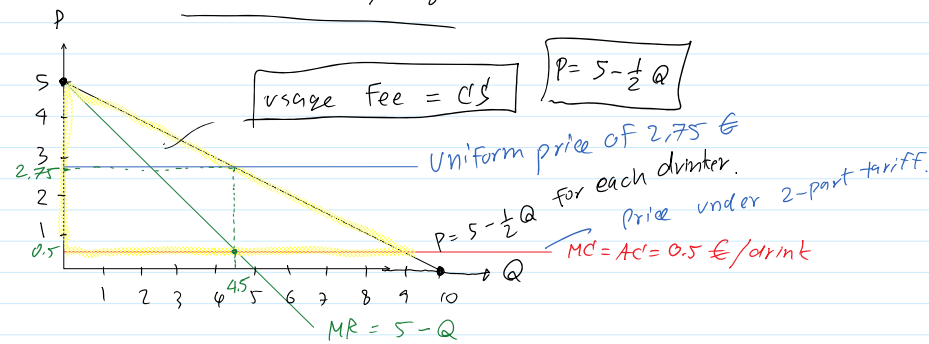 P
5
4
3
2,75
2
1
0.5
usage Fee = CS
P = 5 - 1/2 Q
Uniform price of 2,75 €
for each drinker.
P = 5 - 1/2 Q
Price under 2-part tariff.
MC = AC = 0.5 €/drink
Q
1 2 3 4 4.5 5 6 7 8 9 10
MR = 5 - Q